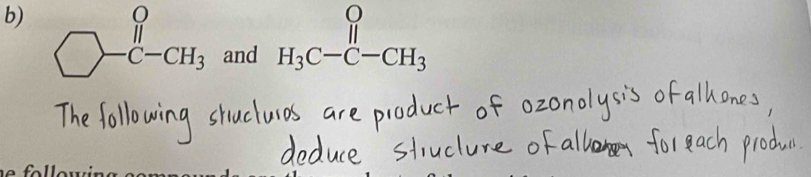 b)
O O
C-CH₃ and H₃C-C-CH₃
The following structuros are product of ozonolysis of alkones,
deduce structure of for each
he following